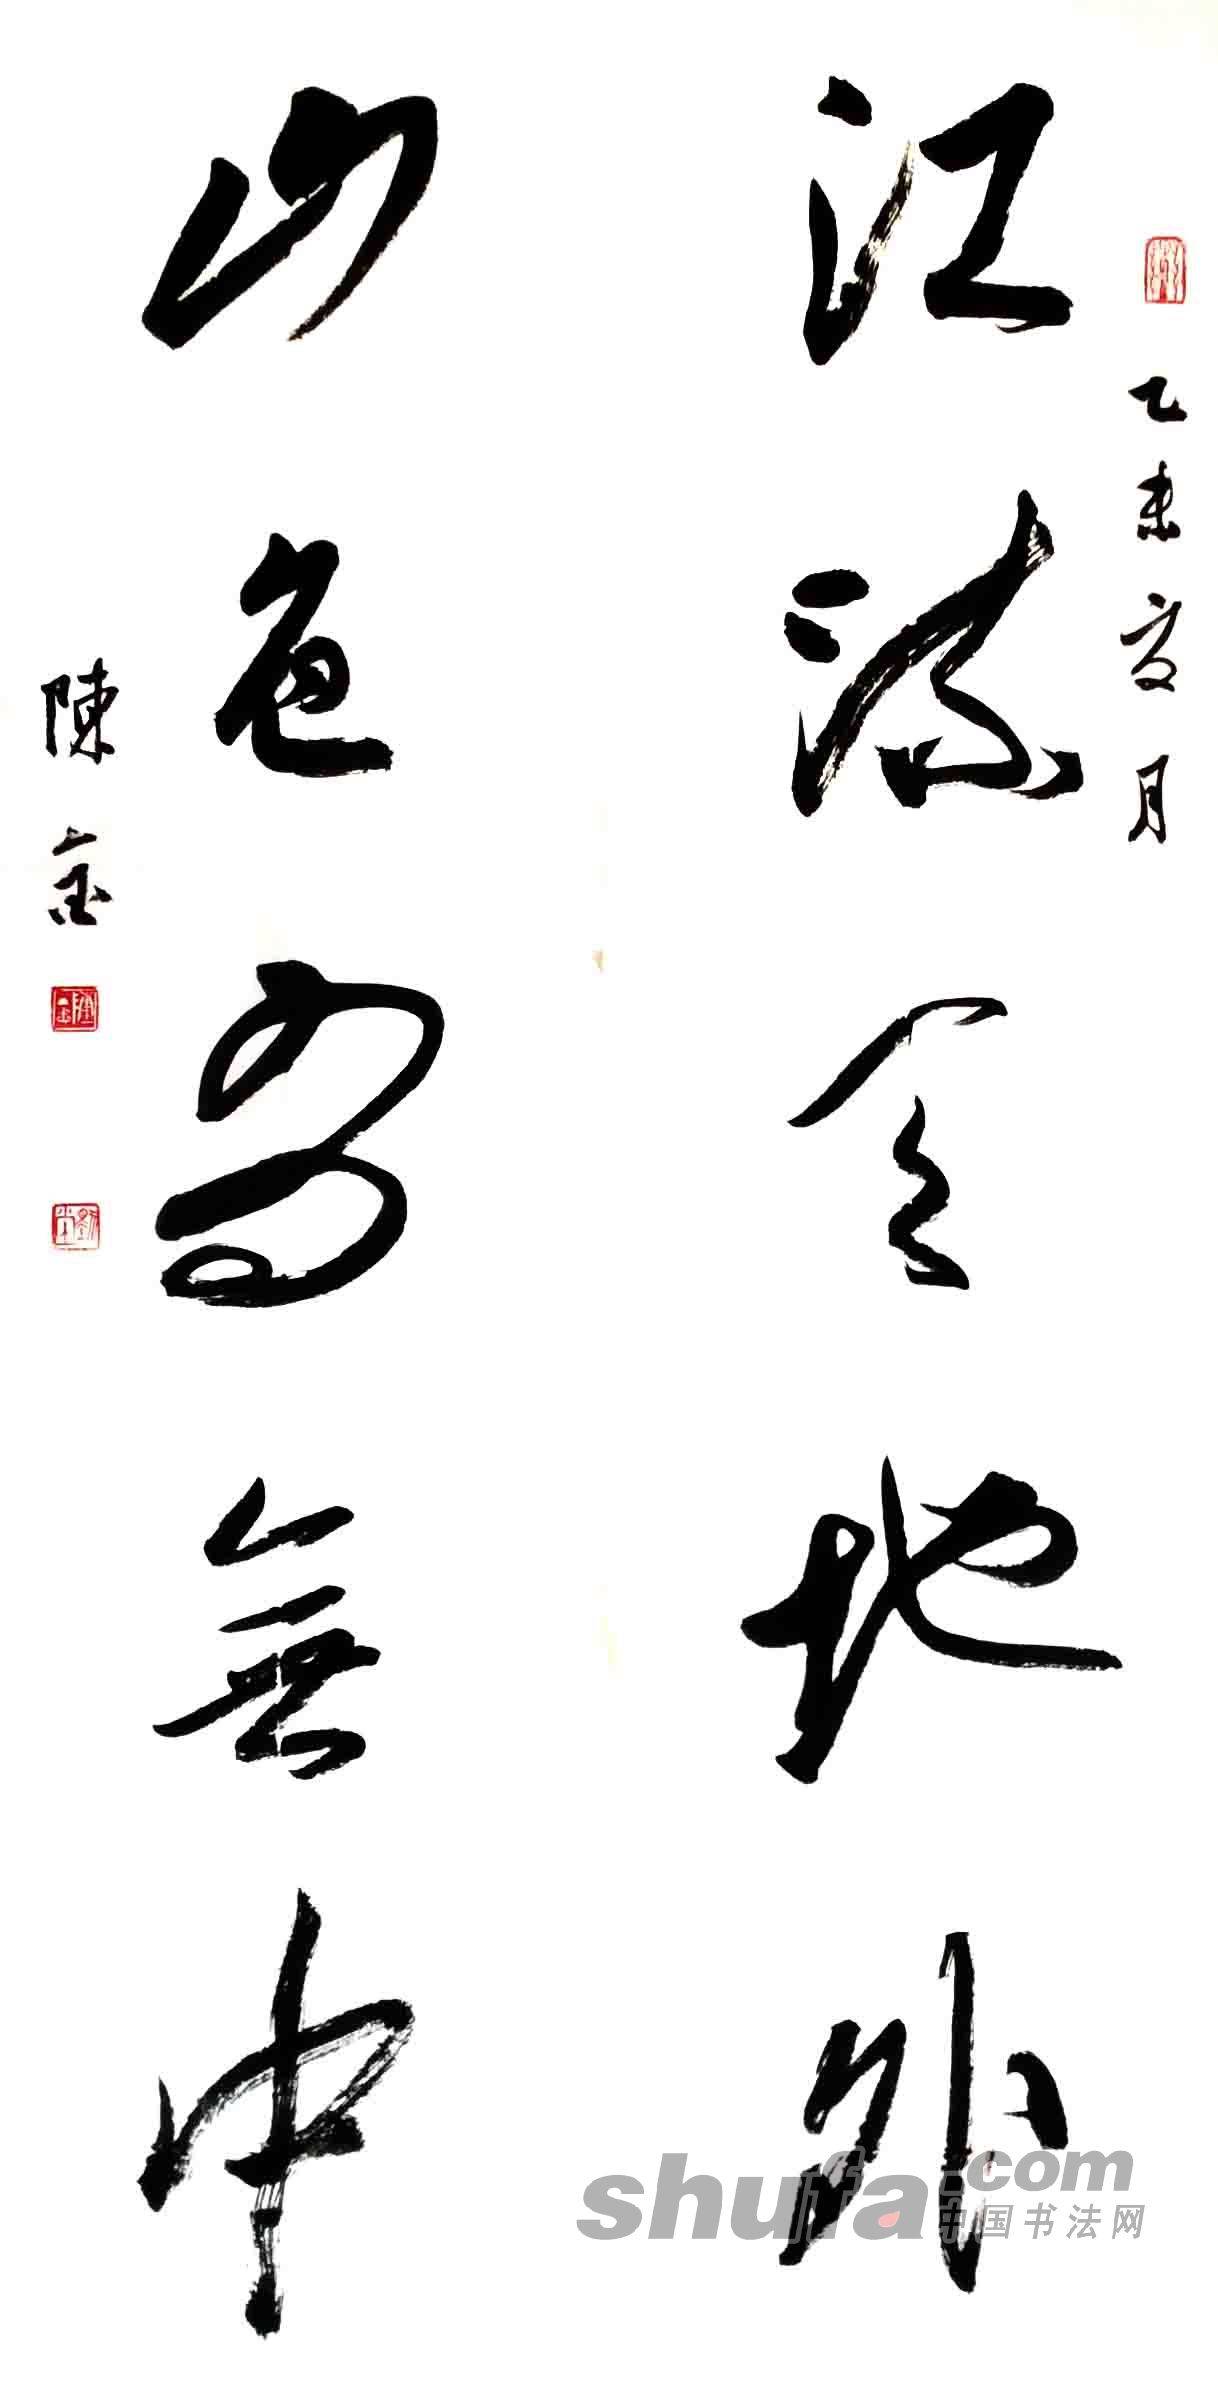 乙未夏月
江流天地外
山色有無中
陳
shufa.com
中国书法网